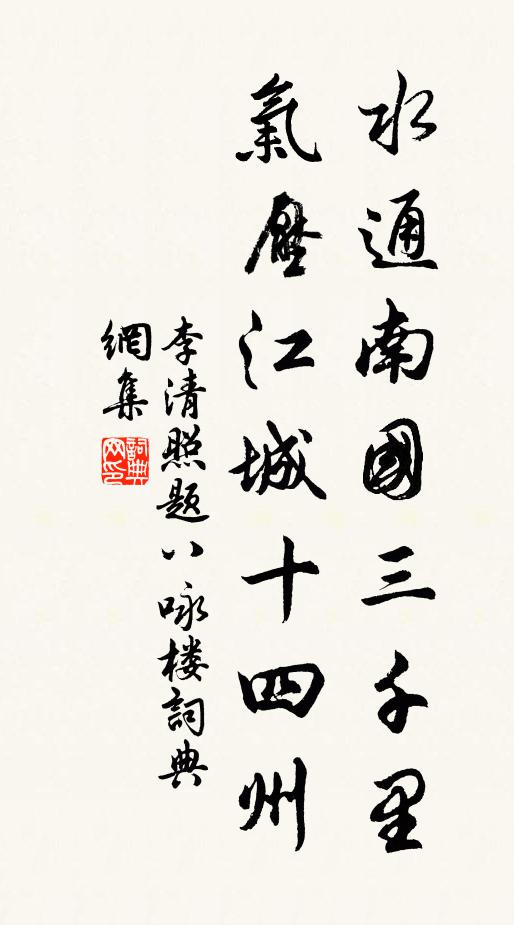 水通南國三千里
氣壓江城十四州
李清照题八咏楼詞典
網集
詞典
网印